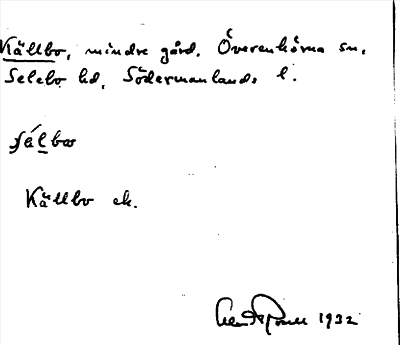 Källbo, mindre gård, Överenhörna sn,
Selebo hd, Södermanlands l.
Källbo ek.
1932